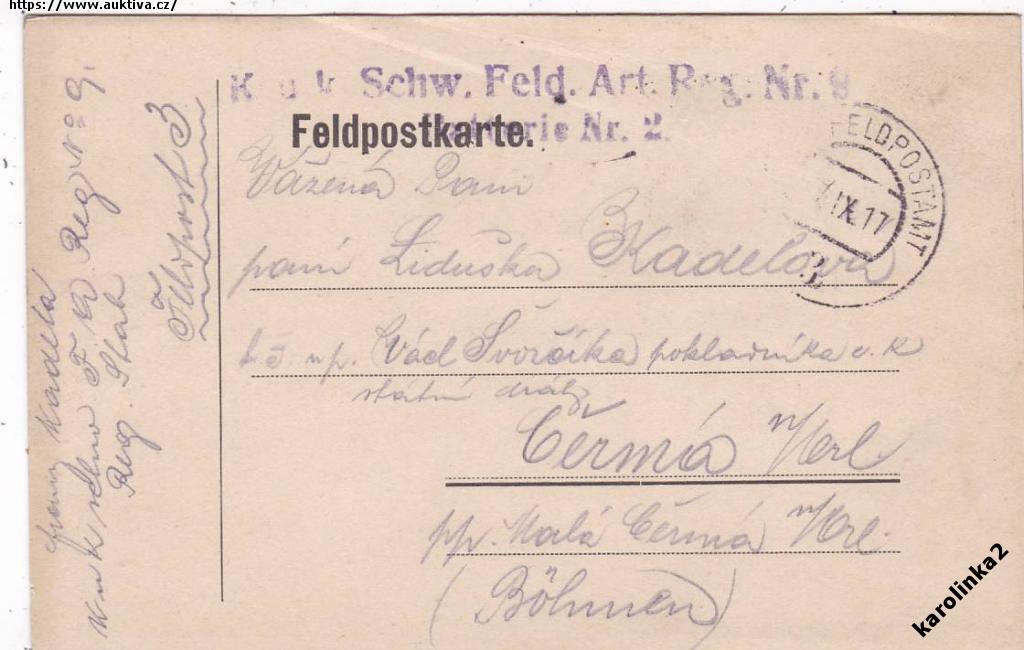 https://www.auktiva.cz/
K. u. k. Schw. Feld. Art. Reg. Nr. 9
Batterie Nr. 2.
Feldpostkarte.
FELDPOSTAMT
IX. 17
3
Vážená Paní
paní Liduška Kadelová
u p. Václ Svorčíka pokladníka c. k
státní dráhy
Čermá n/Orl.
pp. Malá Čermá n/Orl.
(Böhmen)
Franz Kadela
K u k F K Reg No 9.
Reg. Stab
Feldpost 3
karolinka2